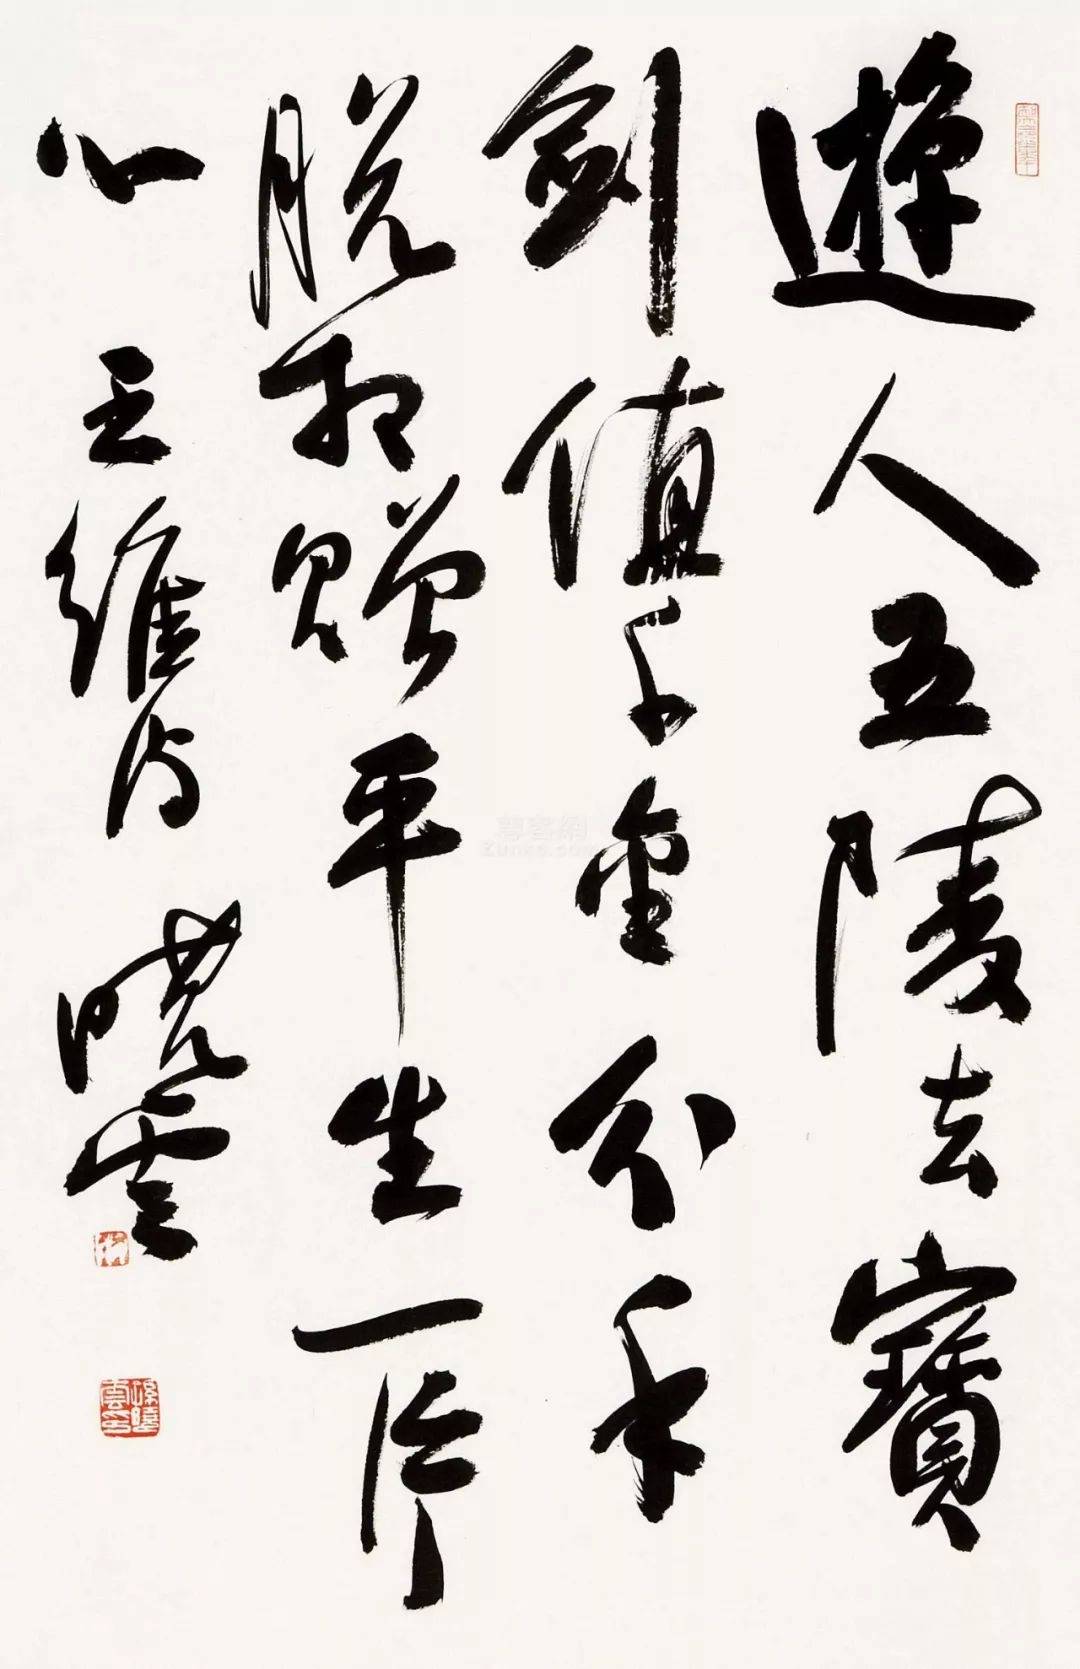 遊人五陵去寶
劍值千金分手
脫相贈平生一片
心 王維句 曉雲
孫曉雲印